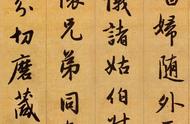 婦隨外
儀諸姑伯叔
懷兄弟同
分切磨箴